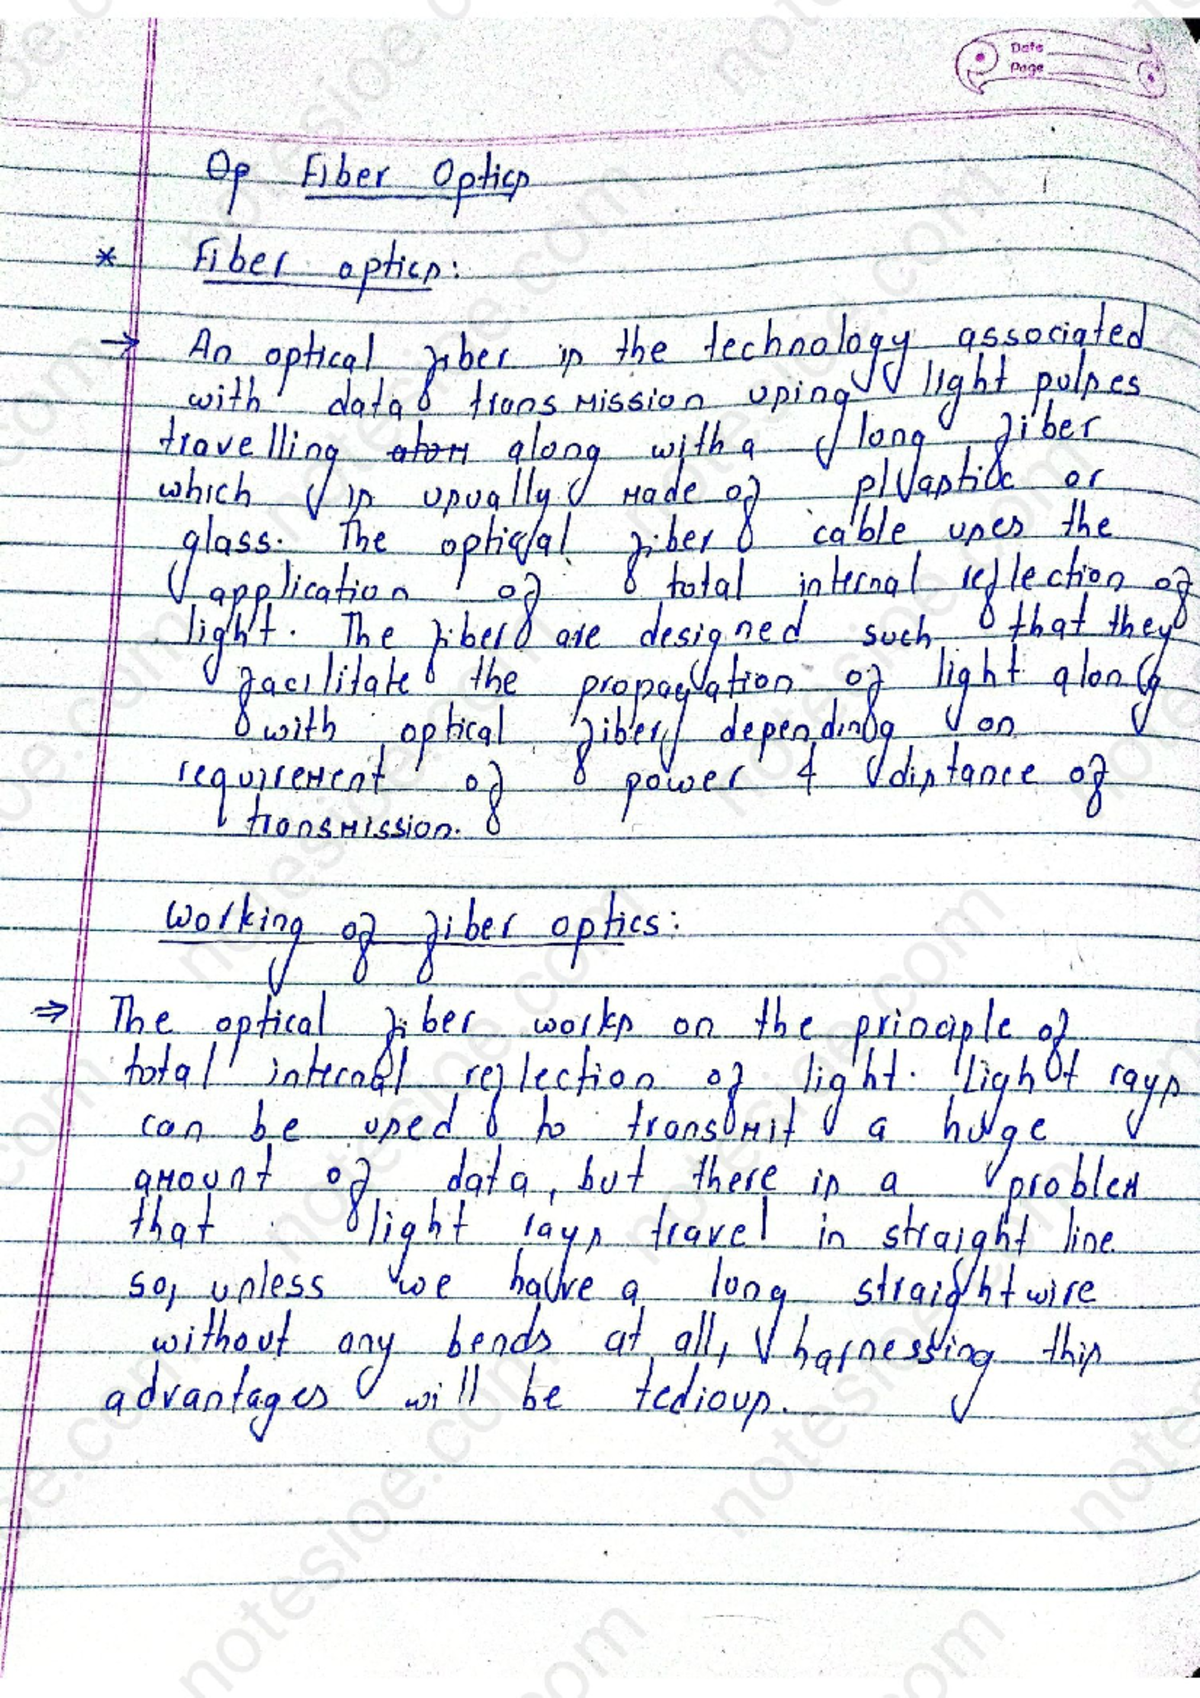 Date
Page
Op Fiber Optics
* Fiber optics:
→ An optical fiber is the technology associated
with data transmission using light pulses
travelling along with a long fiber
which is usually made of plastic or
glass. The optical fiber cable uses the
application of total internal reflection of
light. The fiber are designed such that they
facilitate the propagation of light along
with optical fiber depending on
requirement of power & distance of
transmission.
Working of fiber optics:
⇒ The optical fiber works on the principle of
total internal reflection of light. Light rays
can be used to transmit a huge
amount of data, but there is a problem
that light rays travel in straight line
so, unless we have a long straight wire
without any bends at all, harnessing this
advantages will be tedious.
notesioe.com